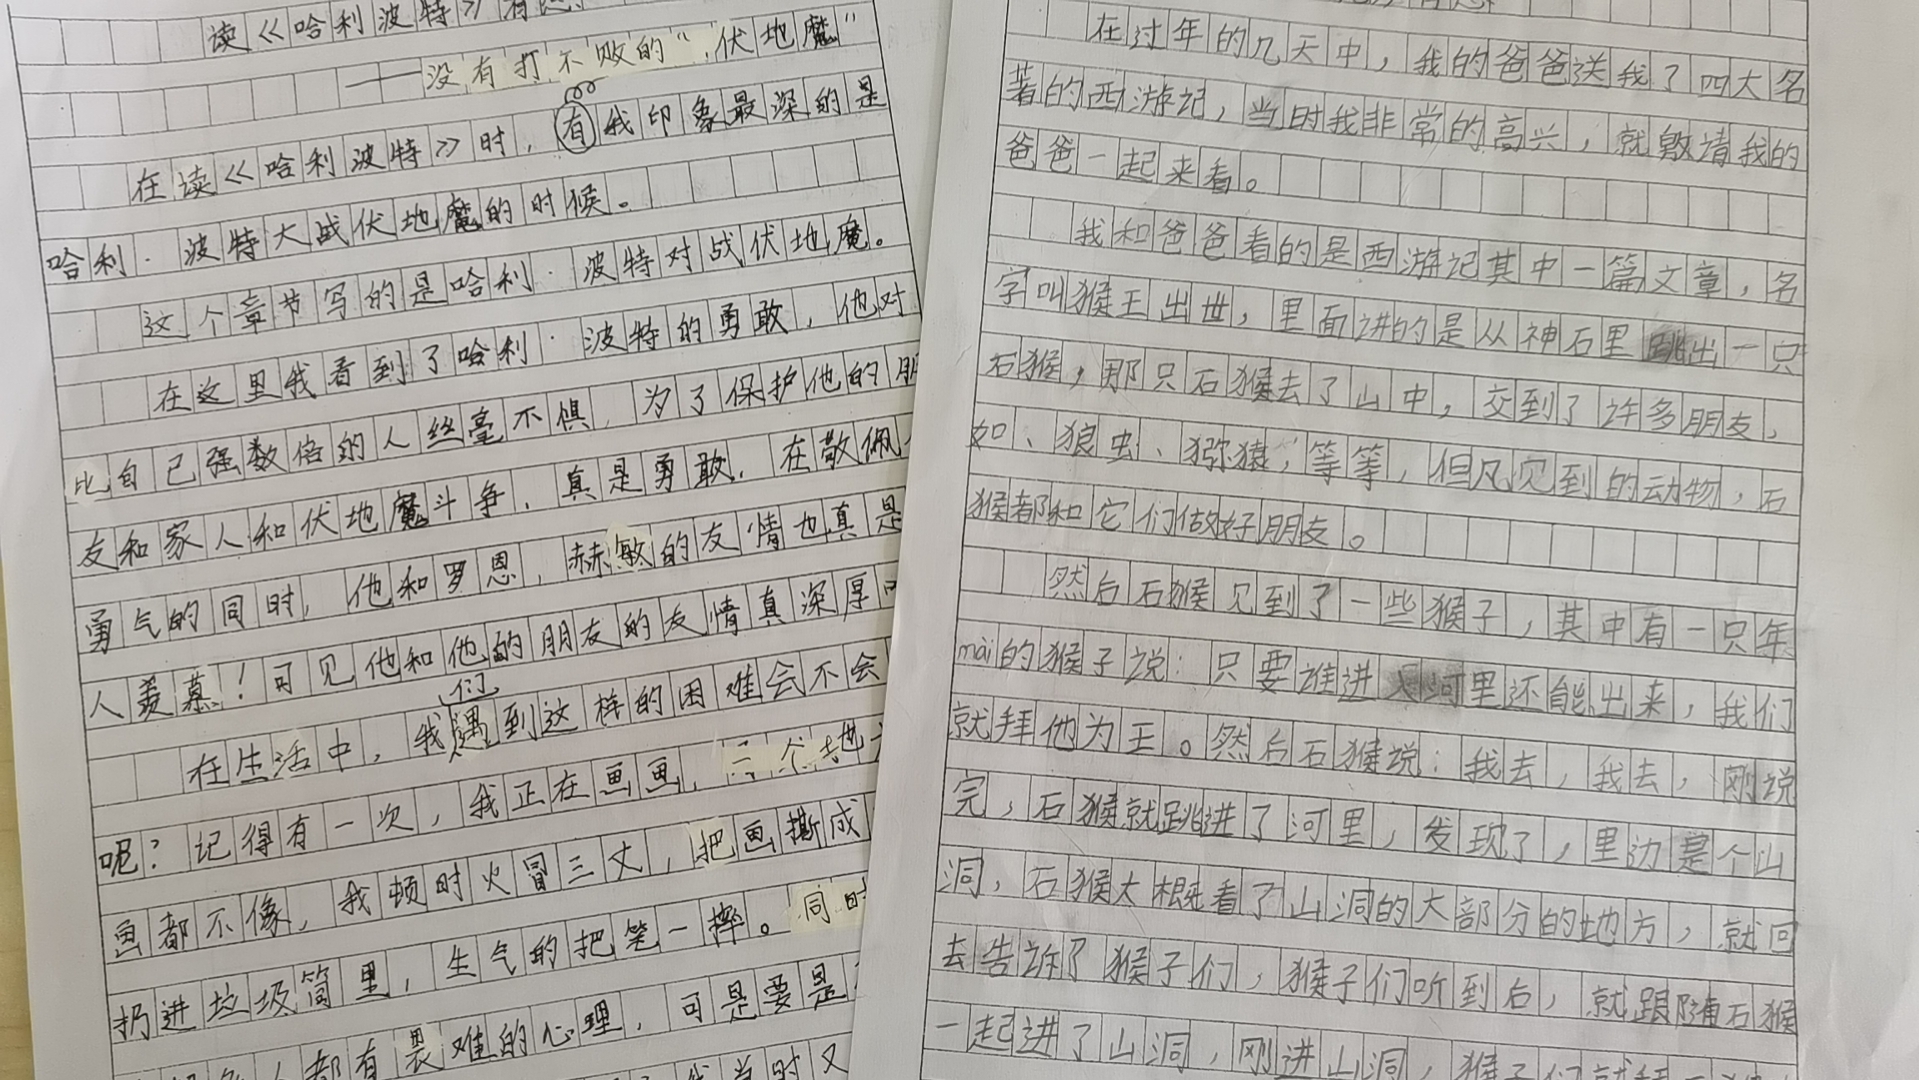 读《哈利波特》有感
——没有打不败的“伏地魔”
在读《哈利波特》时，有我印象最深的是
哈利·波特大战伏地魔的时候。
这个章节写的是哈利·波特对战伏地魔。
在这里我看到了哈利·波特的勇敢，他对
比自己强数倍的人丝毫不惧，为了保护他的朋
友和家人和伏地魔斗争，真是勇敢，在敬佩
勇气的同时，他和罗恩，赫敏的友情也真是
人羡慕！可见他和他的朋友的友情真深厚
在生活中，我们遇到这样的困难会不会
呢？记得有一次，我正在画画，
画都不像，我顿时火冒三丈，把画撕成
扔进垃圾筒里，生气的把笔一摔。同时
人都有畏难的心理，可是要是
当时又
在过年的几天中，我的爸爸送我了四大名
著的西游记，当时我非常的高兴，就邀请我的
爸爸一起来看。
我和爸爸看的是西游记其中一篇文章，名
字叫猴王出世，里面讲的是从神石里跳出一只
石猴，那只石猴去了山中，交到了许多朋友，
如、狼虫、猕猿，等等，但凡见到的动物，石
猴都和它们做好朋友。
然后石猴见到了一些猴子，其中有一只年
mài的猴子说：只要谁进河里还能出来，我们
就拜他为王。然后石猴说：我去，我去，刚说
完，石猴就跳进了河里，发现了，里边是个山
洞，石猴大概看了山洞的大部分的地方，就回
去告诉了猴子们，猴子们听到后，就跟随石猴
一起进了山洞，刚进山洞，猴子们就拜